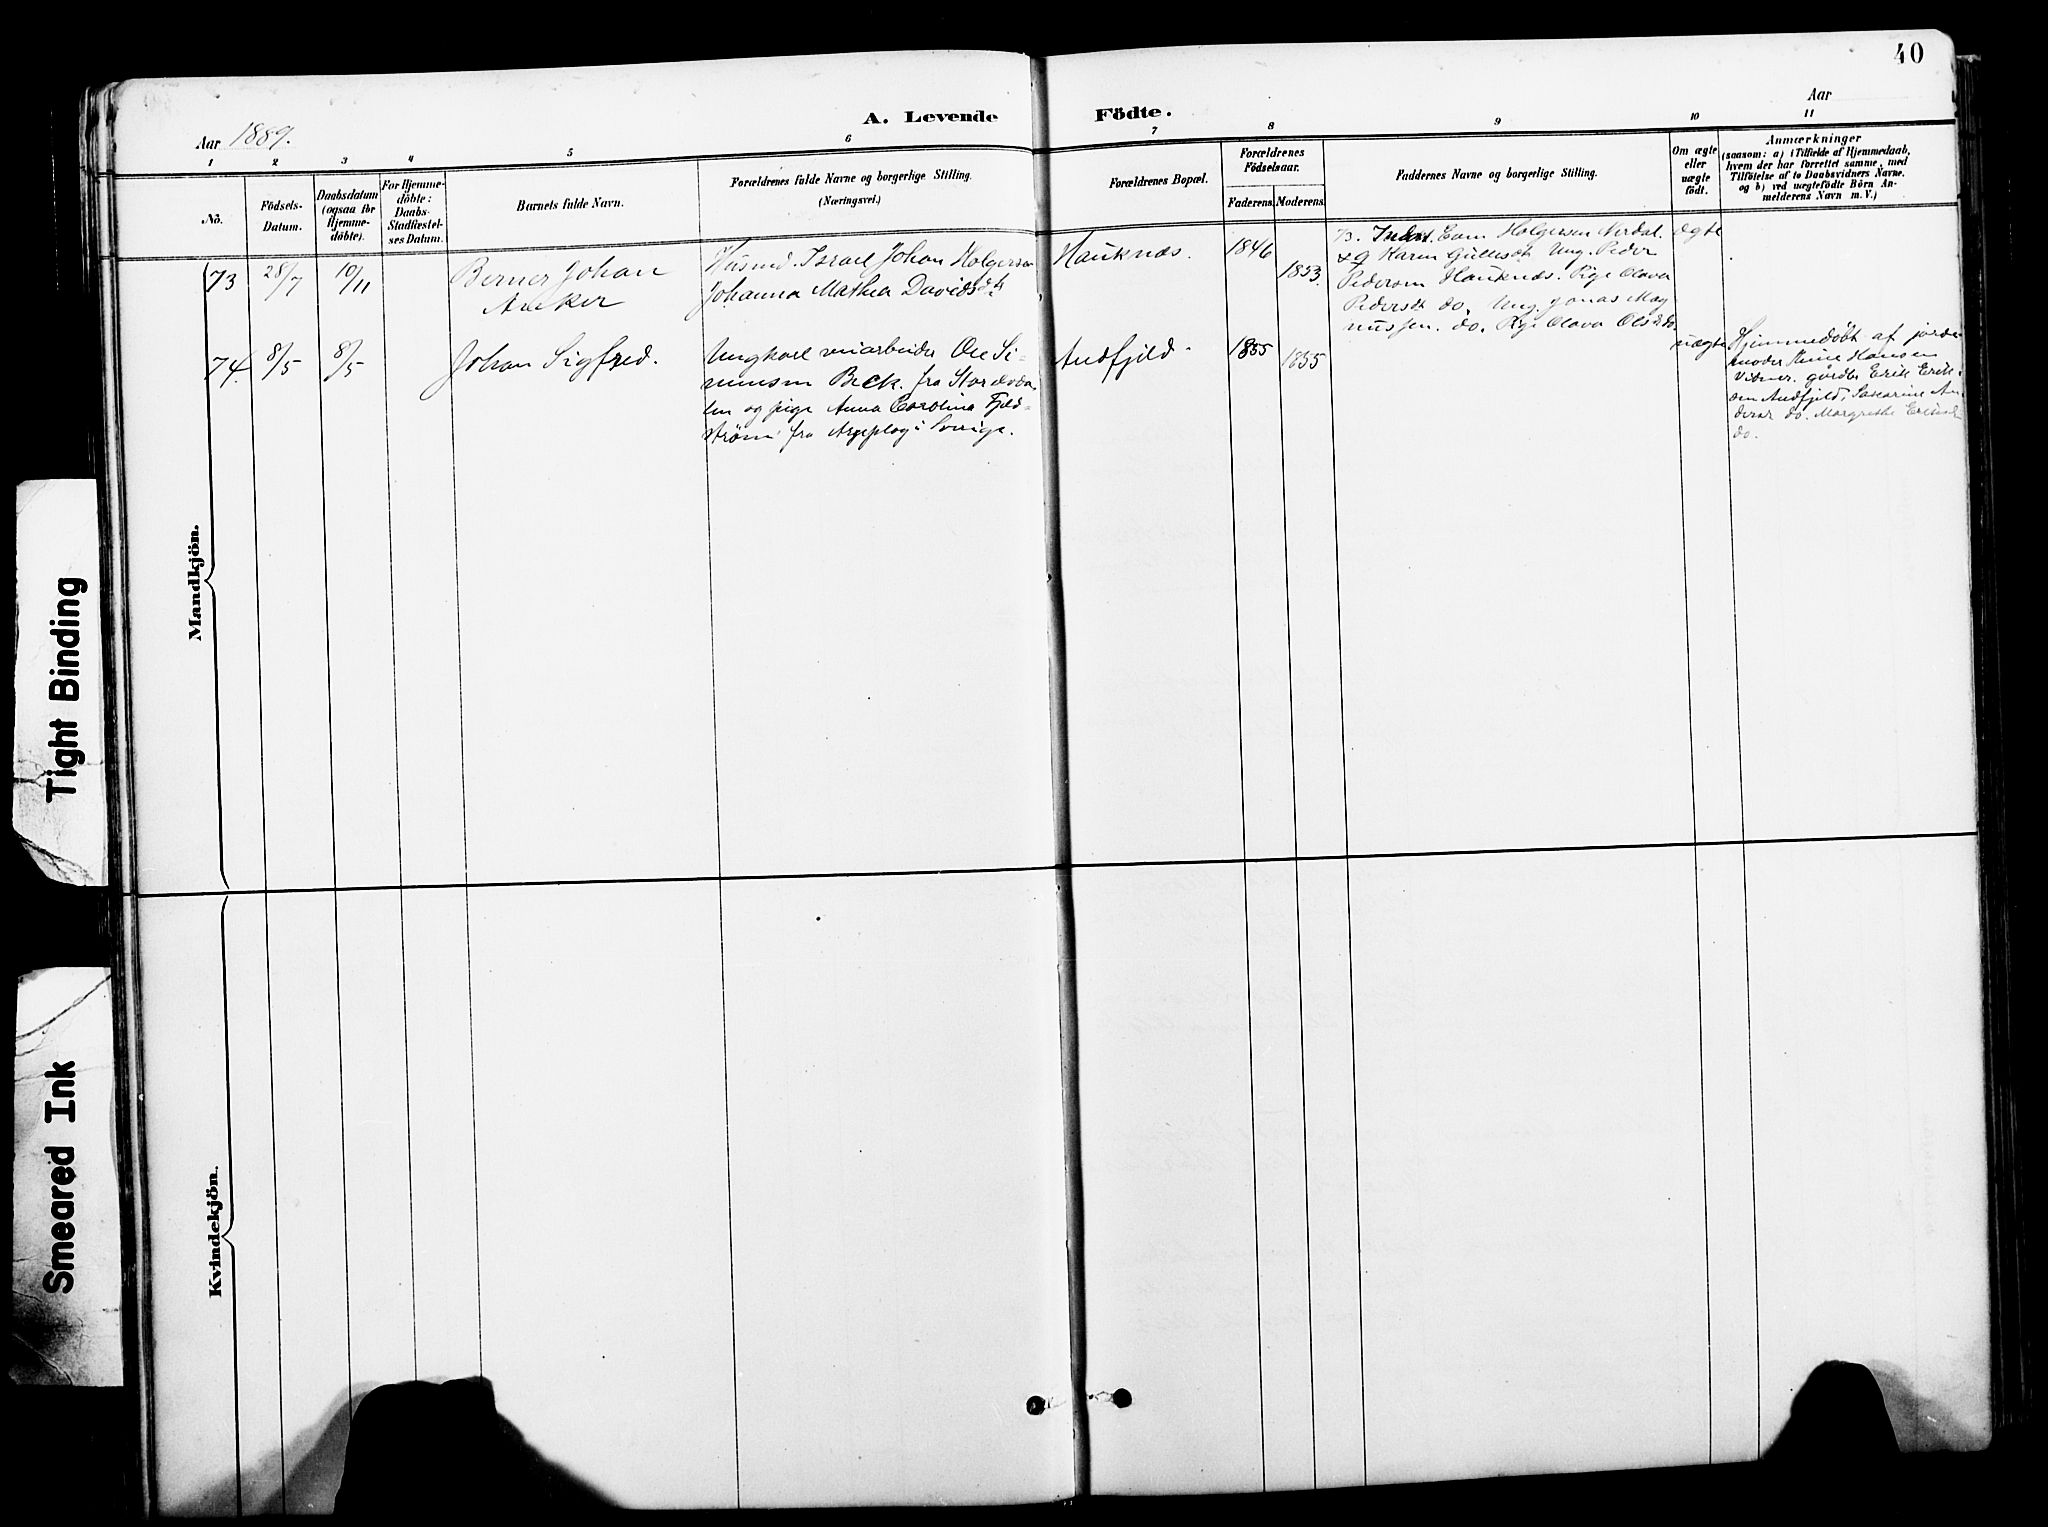 40
A. Levende Födte.
Aar 1889.
Aar
1 2 3 4 5 6 7 8 9 10 11
No.
Födsels-
Datum.
Daabsdatum
(ogsaa for
Hjemme-
döbte).
For Hjemme-
döbte:
Daabs-
Stadfæstel-
ses Datum.
Barnets fulde Navn.
Forældrenes fulde Navne og borgerlige Stilling.
(Næringsvei.)
Forældrenes Bopæl.
Forældrenes
Födselsaar.
Faderens. Moderens.
Faddernes Navne og borgerlige Stilling.
Om ægte
eller
uægte
födt.
Anmærkninger
(saasom: a) i Tilfælde af Hjemmedaab,
hvem der har forrettet samme, med
Tilföielse af to Daabsvidners Navne.
og b) ved uægtefödte Börn An-
melderens Navn m. V.)
Mandkjön.
73 28/7 10/11
Berner Johan
Anker
Husmd. Israel Johan Holgersen
Johanna Mathea Davidsdt
Hauknæs.
1846
1853.
73. Inderst. Holgersen Nerdal.
Karen Gullesdt Ung. Peder
Pedersen Hauknæs. Pige Olava
Pedersdt do. Ung. Jonas Mag
nussen. do. Pige Olava Olsdt do
ægte
74. 8/5 8/5
Johan Sigfred.
Ungkarl Ole Si-
monsen Beck. fra
og pige Anna Carolina Fjeld-
strøm fra Arjeplog i Sverige.
Andfjeld.
1855
1855
uægte
Hjemmedøbt af jorde-
moder Hansen
Vidner. gårdbr Erik Erik-
sen Andfjeld, An
dersdt do. Margrethe Eriksdt
do.
Kvindekjön.
Tight Binding
Smeared Ink